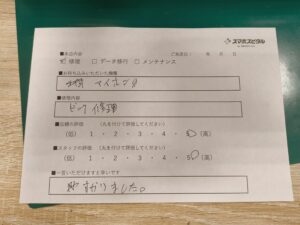 スマホスピタル
■来店内容 ご来店日： 年 月 日
☑ 修理 □ データ移行 □ メンテナンス
■お持ち込みいただいた機種
■修理内容
ピン 修理
■店頭の評価 (丸を付けて評価してください)
(低) 1 ・ 2 ・ 3 ・ 4 ・ 5 (高)
■スタッフの評価 (丸を付けて評価してください)
(低) 1 ・ 2 ・ 3 ・ 4 ・ 5 (高)
■一言いただけますと幸いです
助かりました。